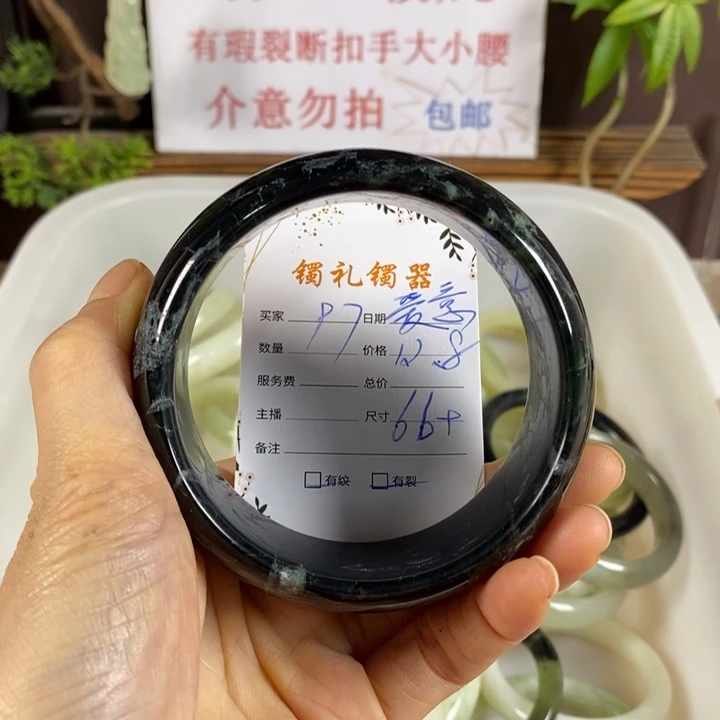 有瑕裂断扣手大小腰
介意勿拍 包邮
镯礼镯器
买家 97 日期
数量 价格 12.8
服务费 总价
主播 尺寸 66+
备注
有纹 有裂